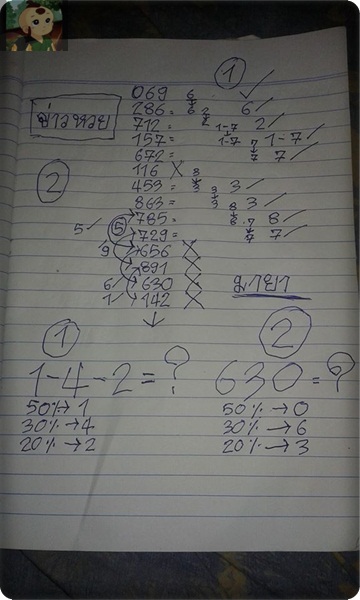 1
069 6 6 ✓
286= 6 2 2 6 ✓
712= 1-7 1-7 2 ✓
157= 7 7 1-7 ✓
672= 7 ✓
2
116 X 3 3
453= 3 3 3 ✓
863= 8 8 3 ✓
5 ✓ 5 785= 7 7 8 ✓
729= 7 ✓
9 656 X
891 X
6 630 X มายา
1 142 X
↓
1
1-4-2=?
50%→1
30%→4
20%→2
2
630=?
50%→0
30%→6
20%→3